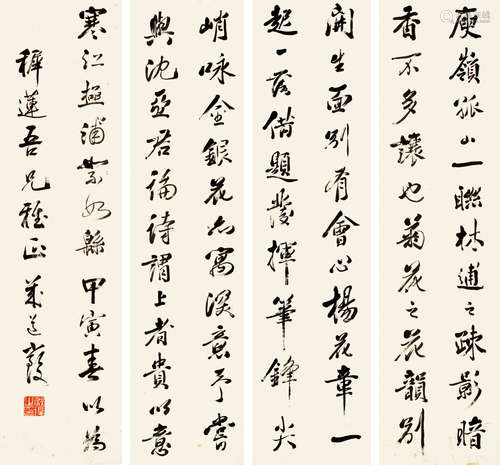 庾嶺孤山一聯林逋之疎影暗
香不多讓也菊花之花韻別
開生面別有會心楊花章一
起一落借題發揮筆鋒尖
峭咏金銀花亦寓深意予嘗
與沈亞君論詩謂上者貴以意
寒江極浦 甲寅春以為
稺蓮吾兄雅正